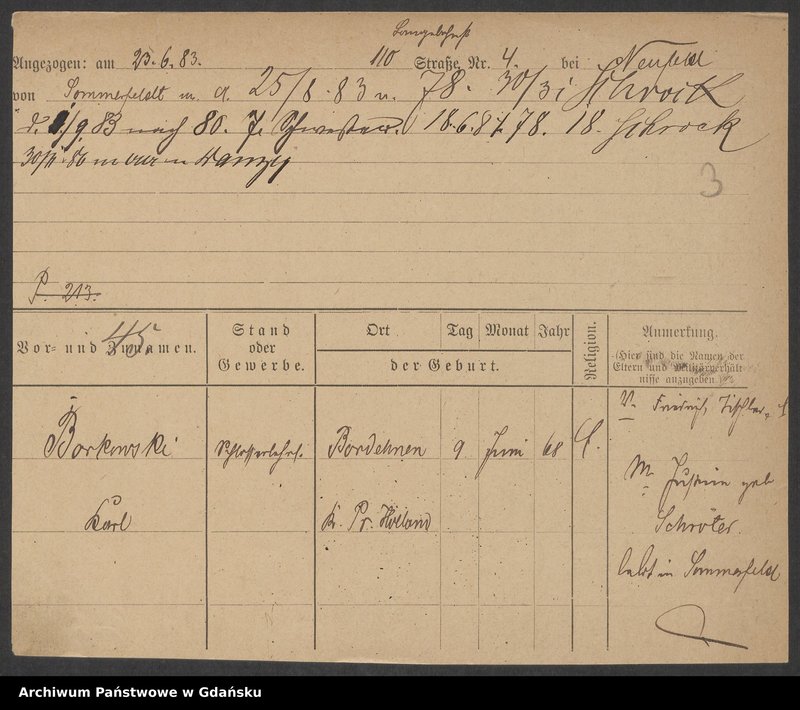 Angezogen: am 23.6.83. 110 Straße, Nr. 4. bei Neufeld
von Sommerfeldt m. A. 25/8.83 n. 78. 30/3i Schrock
1/9 83 nach 80. 7. 18.6.84 78. 18. Schrock
30/ 86 Danzig
3
P. 213.
45
Vor- und Zunamen.
Stand oder Gewerbe.
Ort Tag Monat Jahr
der Geburt.
Religion.
Anmerkung.
(Hier sind die Namen der
Eltern und Militärverhält-
nisse anzugeben.)
Borkowski Schlosserlehrl. Bordehnen 9 Juni 68
V. Friedrich, Tischler
Karl Kr. Pr. Holland
M. Justine geb
Schröter
lebt in Sommerfeld
Archiwum Państwowe w Gdańsku